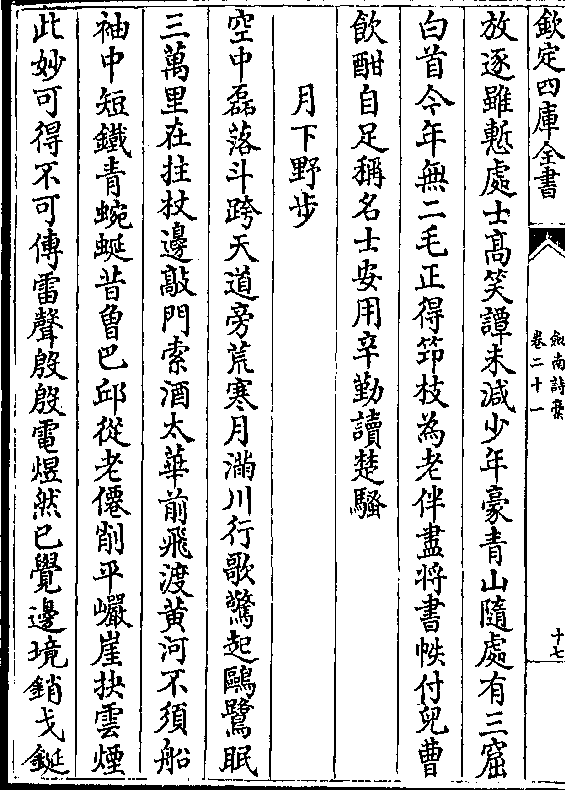 欽定四庫全書
劍南詩稾
卷二十一
十七
放逐雖慙處士髙笑譚未減少年豪青山隨處有三窟
白首今年無二毛正得笻枝為老伴盡將書帙付兒曹
飲酣自足稱名士安用辛勤讀楚騷
月下野步
空中磊落斗跨天道旁荒寒月滿川行歌驚起鷗鷺眠
三萬里在拄杖邊敲門索酒太華前飛渡黄河不須船
袖中短鐵青蜿蜒昔魯巴邱從老僊削平巗崖抉雲煙
此妙可得不可傳雷聲殷殷電煜然已覺邊境銷戈鋋